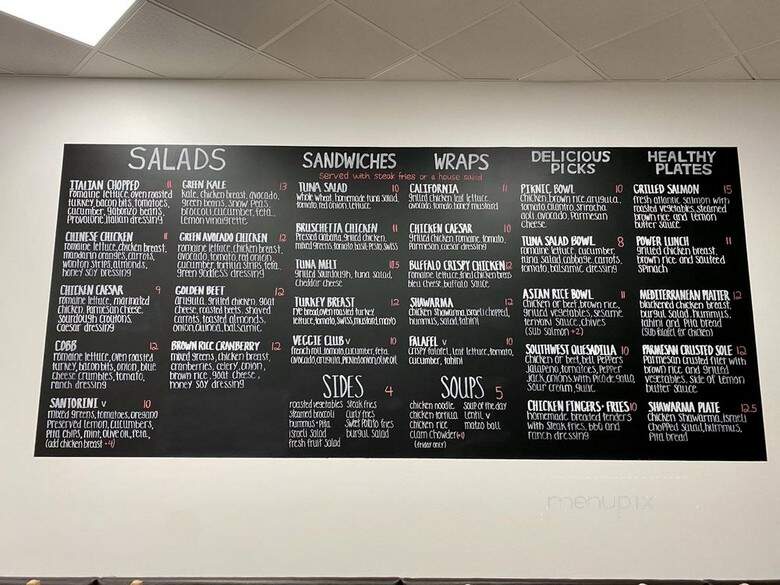 SALADS
ITALIAN CHOPPED 11
romaine lettuce, oven roasted
turkey, bacon bits, tomatoes,
cucumber, garbanzo beans,
Provolone, italian dressing
CHINESE CHICKEN 11
romaine lettuce, chicken breast,
mandarin oranges, carrots,
wonton strips, almonds,
honey soy dressing
CHICKEN CAESAR 9
romaine lettuce, marinated
chicken, Parmesan cheese,
sourdough croutons,
Caesar dressing
COBB 12
romaine lettuce, oven roasted
turkey, bacon bits, onion, blue
cheese crumbles, tomato,
ranch dressing
SANTORINI V 10
mixed greens, tomatoes, oregano
Preserved lemon, cucumbers,
Pita chips, mint, olive oil, feta,
(add chicken breast +4)
GREEN KALE 13
kale, chicken breast, avocado,
green beans, snow peas,
broccoli, cucumber, feta,
Lemon vinaigrette
GREEN AVOCADO CHICKEN 12
romaine lettuce, chicken breast,
avocado, tomato, red onion,
cucumber, tortilla strips, feta,
green goddess dressing
GOLDEN BEET 12
arugula, grilled chicken, goat
cheese, roasted beets, shaved
carrots, toasted almonds,
onion, quinoa, balsamic
BROWN RICE CRANBERRY 12
mixed greens, chicken breast,
cranberries, celery, onion,
brown rice, goat cheese,
honey soy dressing
SANDWICHES WRAPS
Served with steak fries or a house salad
TUNA SALAD 10
whole wheat, homemade tuna salad,
tomato, red onion, lettuce
BRUSCHETTA CHICKEN 11
Pressed ciabatta, grilled chicken,
mixed greens, tomato, basil, Pesto, swiss
TUNA MELT 11.5
grilled sourdough, tuna salad,
cheddar cheese
TURKEY BREAST 12
rye bread, oven roasted turkey
lettuce, tomato, swiss, mustard, mayo
VEGGIE CLUB V 10
french roll, tomato, cucumber, feta,
avocado, arugula,
CALIFORNIA 11
grilled chicken, leaf lettuce,
avocado, tomato, honey mustard
CHICKEN CAESAR 10
grilled chicken, romaine, tomato,
Parmesan, caesar dressing
BUFFALO CRISPY CHICKEN 12
romaine lettuce, fried chicken breast
bleu cheese, buffalo sauce
SHAWARMA 12
chicken shawarma, israeli chopped,
hummus, salad, tahini
FALAFEL V 10
crispy falafel, leaf lettuce, tomato,
cucumber, tahini
SIDES 4
roasted vegetables steak fries
steamed brocoli curly fries
hummus + Pita sweet Potato fries
israeli Salad burgul salad
fresh fruit Salad
SOUPS 5
chicken noodle soup of the day
chicken tortilla lentil v
chicken rice matzo ball
clam chowder (+1)
(friday only)
DELICIOUS
PICKS
PIKNIC BOWL 10
chicken, brown rice, arugula,
tomato, cilantro, sriracha
aioli, avocado, Parmesan
cheese
TUNA SALAD BOWL 8
romaine lettuce, cucumber,
tuna salad, cabbage, carrots,
tomato, balsamic dressing
ASIAN RICE BOWL 11
chicken or beef, brown rice,
grilled vegetables, sesame
teriyaki sauce, chives
(sub salmon +2)
SOUTHWEST QUESADILLA 10
chicken or beef, bell peppers
jalapeno, tomatoes, Pepper
Jack, onions with Pico de gallo,
sour cream, guac
CHICKEN FINGERS + FRIES 10
homemade breaded tenders
with steak fries, bbq and
ranch dressing
HEALTHY
PLATES
GRILLED SALMON 15
fresh atlantic salmon with
roasted vegetables, steamed
brown rice and lemon
butter sauce
POWER LUNCH 11
grilled chicken breast,
brown rice and sauteed
spinach
MEDITERRANEAN PLATTER 12
blackened chicken breast,
burgul salad, hummus,
tahini and Pita bread
(sub falafel for chicken)
PARMESAN CRUSTED SOLE 12
Parmesan crusted filet with
brown rice and grilled
vegetables, side of lemon
butter sauce
SHAWARMA PLATE 12.5
Chicken shawarma, israeli
chopped salad, hummus,
Pita bread
menupix